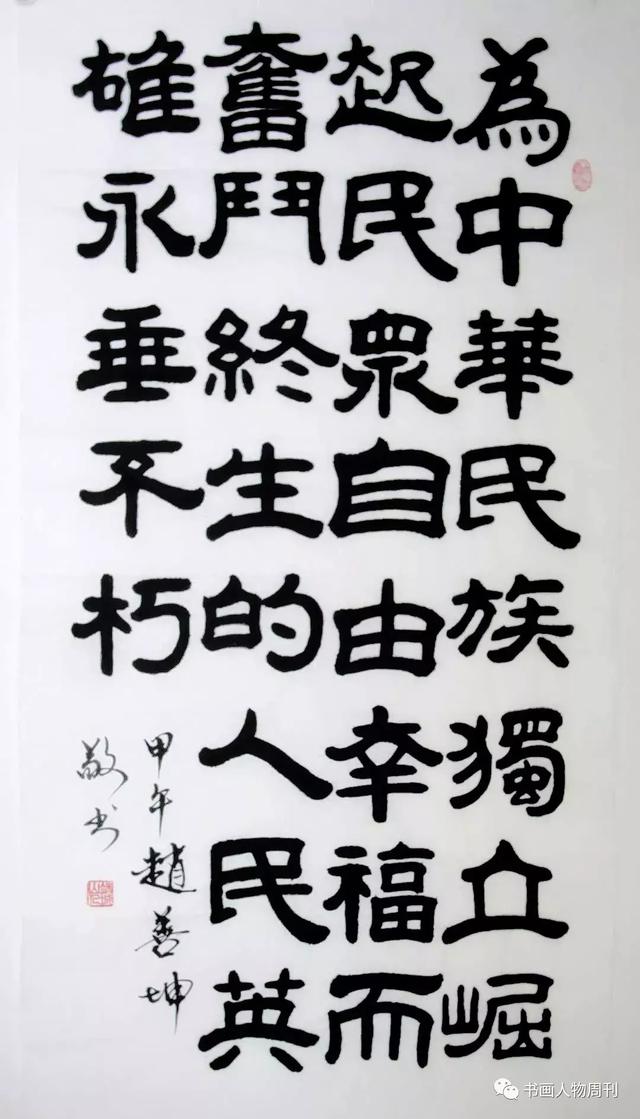 為中華民族獨立崛
起民眾自由幸福而
奮鬥終生的人民英
雄永垂不朽
甲午趙善坤
敬书
书画人物周刊